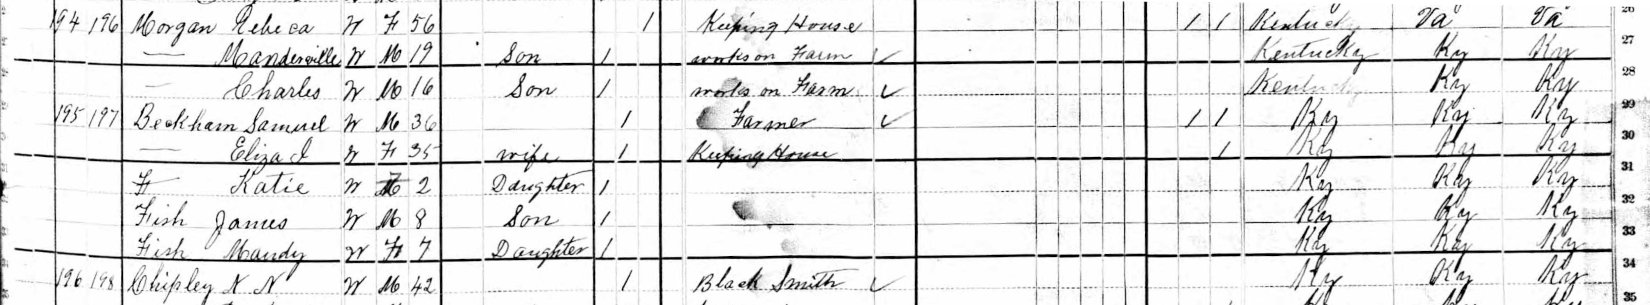 26
194 196 Morgan Rebeca W F 56 1 Keeping House 1 1 Kentucky Va Va
27
— Manderville W M 19 Son 1 works on Farm ✓ Kentucky Ky Ky
28
— Charles W M 16 Son 1 works on Farm ✓ Kentucky Ky Ky
29
195 197 Beckham Samuel W M 36 1 Farmer ✓ 1 1 Ky Ky Ky
30
— Eliza J W F 35 wife 1 Keeping House 1 Ky Ky Ky
31
Katie W F 2 Daughter 1 Ky Ky Ky
32
Fish James W M 8 Son 1 Ky Ky Ky
33
Fish Mandy W F 7 Daughter 1 Ky Ky Ky
34
196 198 Chipley N N W M 42 1 Black Smith ✓ Ky Ky Ky
35